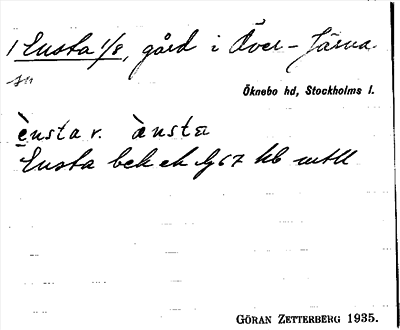 1 Ensta 1/8, gård i Över-Järna.
Öknebo hd, Stockholms l.
ènsta v. ànsta
Ensta bek ek G 67 hb
GÖRAN ZETTERBERG 1935.